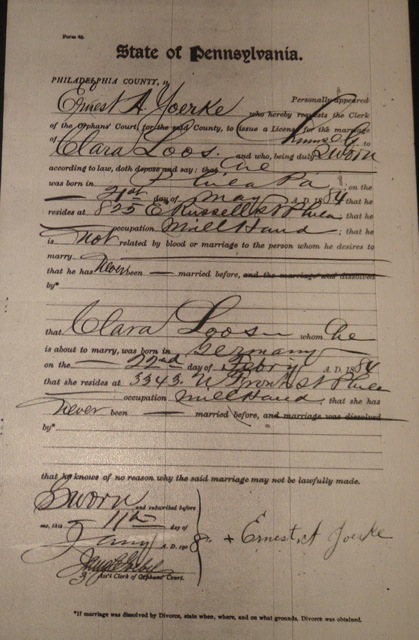 Form 48.
State of Pennsylvania.
PHILADELPHIA COUNTY, ss
Ernest A Yoerke Personally appeared
who hereby requests the Clerk
of the Orphans' Court for the said County, to issue a License for the marriage
of himself to
Clara Loos and who, being duly Sworn
according to law, doth depose and say: that he
was born in Phila Pa, on the
21st day of May A. D. 1884 that he
resides at 825 E Russell St Phila that he
occupation Mill Hand; that he
is not related by blood or marriage to the person whom he desires to
marry.
that he has never been married before, and the marriage was dissolved
by*
that Clara Loos whom he
is about to marry, was born in Germany
on the 22nd day of Febry A. D. 1884
that she resides at 3343 N Front St Phila
occupation Mill Hand, that she has
never been married before, and marriage was dissolved
by*
that he knows of no reason why the said marriage may not be lawfully made.
Sworn and subscribed before
me, this 11th day of
Jany A. D. 190 8 + Ernest A Joerke
Ass't Clerk of Orphans' Court.
*If marriage was dissolved by Divorce, state when, where, and on what grounds, Divorce was obtained.